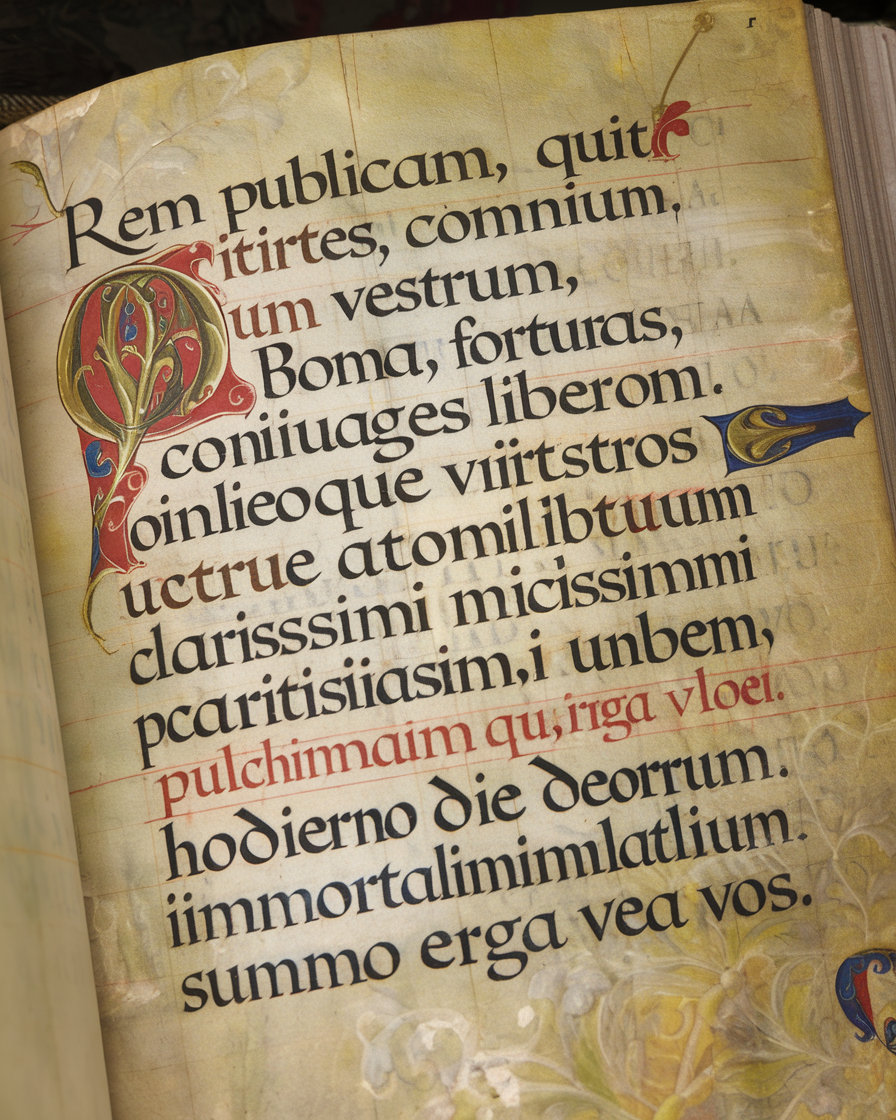 Rem publicam, quit
itirtes, comnium,
um vestrum,
Boma, forturas,
coniiuages liberom.
oinlieoque viirtstros
uctrue atomilibtuum
clarisssimi micissimmi
pcaritisiiasim,i unbem,
pulchinnaim qu,irga vloei.
hodierno die deorrum.
iimmortalimimlatlium.
summo erga vea vos.